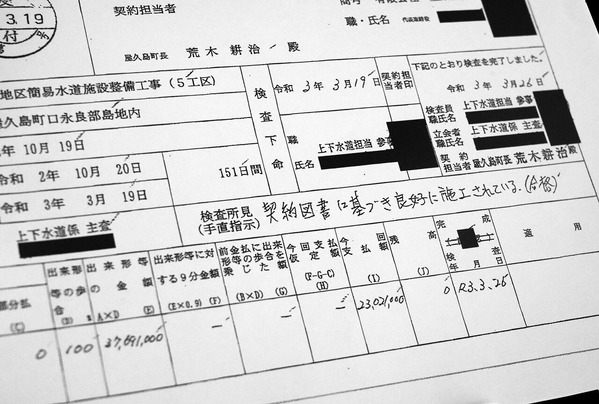 3.19
付
契約担当者
職・氏名 代表取締役
屋久島町長 荒木 耕治 殿
地区簡易水道施設整備工事(5工区)
屋久島町口永良部島地内
年 10月 19日
令和 2年 10月 20日
令和 3年 3月 19日
151日間
上下水道係 主査
検査下命
令和 3年 3月19日
契約担当者印
職氏名
上下水道担当 参事
下記のとおり検査を完了しました。
令和 3年 3月26日
検査員職氏名 上下水道担当 参事
立会者職氏名 上下水道係 主査
契約担当者 屋久島町長 荒木耕治殿
検査所見(手直指示) 契約図書に基づき良好に施工されている。(合格)
部分払 (C)
出来形等の歩合 (D)
出来形等の金額 A×D (E)
出来形等に対する9分金額 (E×0.9) (F)
前金払に出来形等の歩合を乗じた金額 (B×D) (G)
今回支払仮定額 (F-G-C) (H)
今回支払額 (I)
残高 (J)
完成検査年月日
適用
0
100
37,691,000
—
—
—
23,021,000
0
R3.3.26